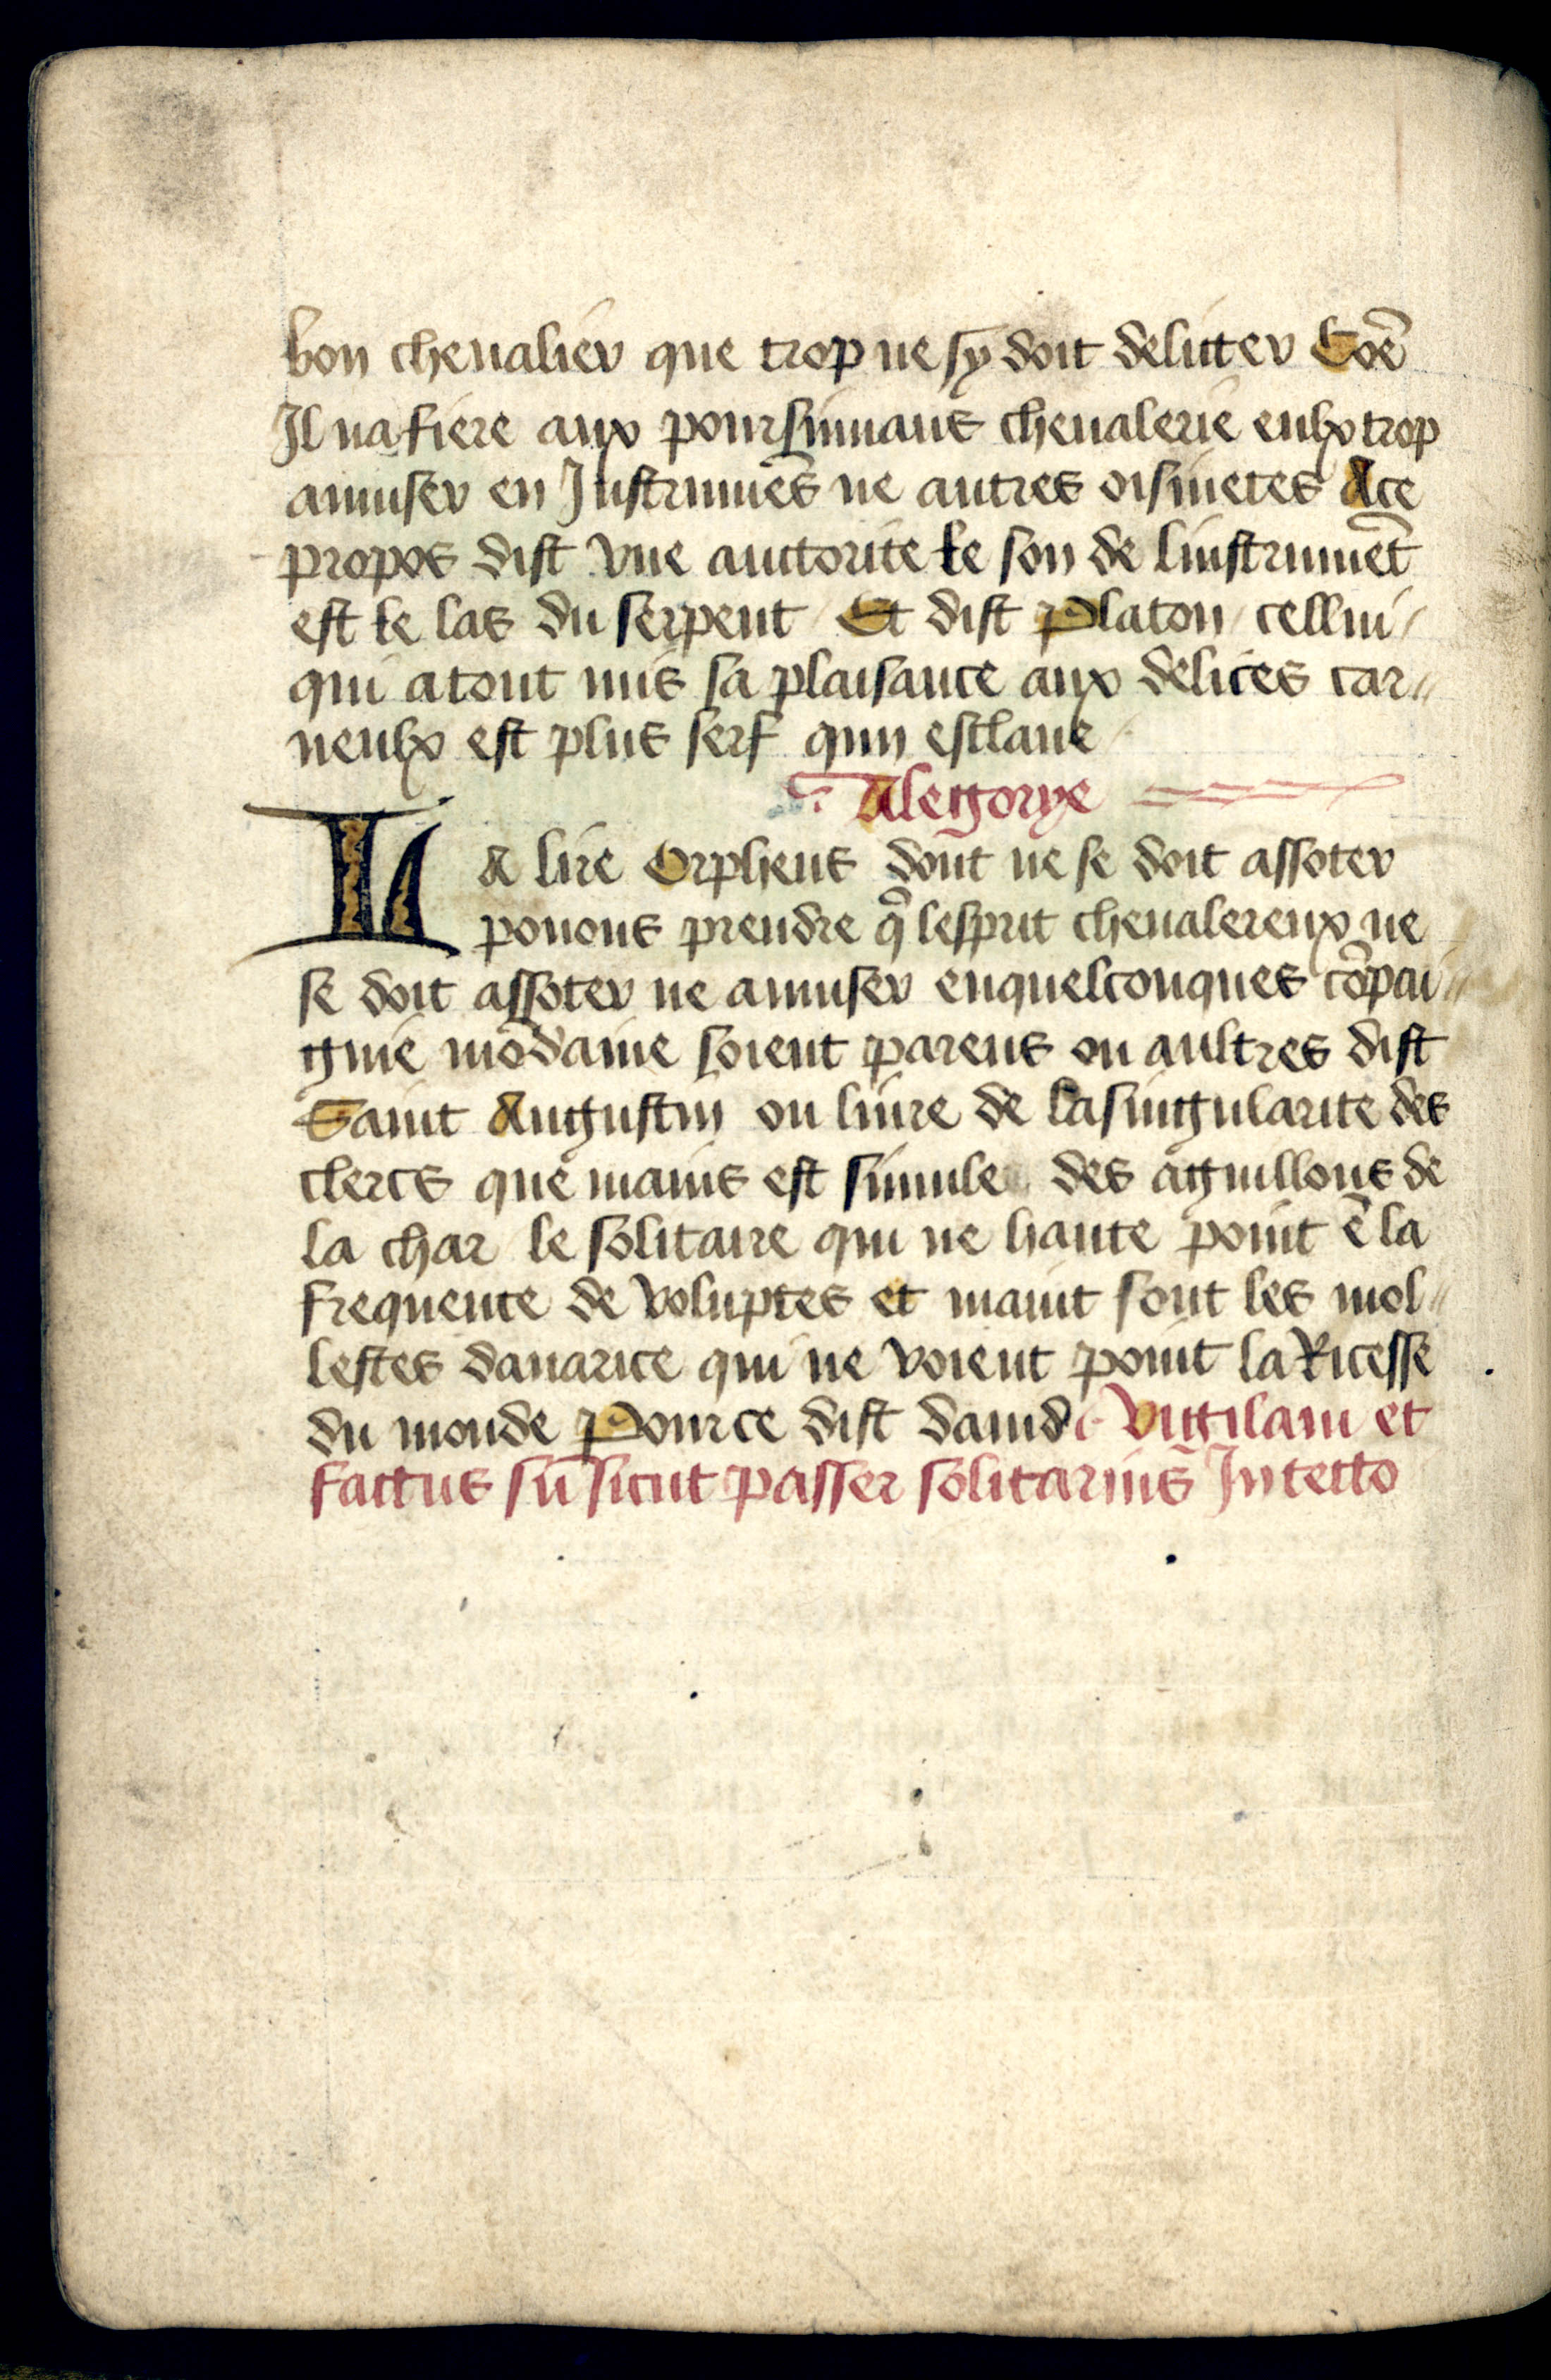 bon cheualier que trop ne sy doit deliter Coẽ
Il nafiere aux poursuiuans cheualerie eulx trop
amuser en Instrumẽs ne autres oisiuetes Ace
propos dist vne auctorite le son de linstrumẽt
est le las du serpent / Et dist Platon / cellui /
qui atout mis sa plaisance aux delices car〃
neulx est plus serf qun esclaue /
Alegorye
LA lire Orpheus dont ne se doit assoter
pouons prendre q̃ lesprit cheualereux ne
se doit assoter ne amuser enquelconques cõpai〃
gnie mõdaine soient parens ou aultres dist
Saint Augustin ou liure de lasingularite des
clercs que mains est simule des aguillons de
la char le solitaire qui ne hante point ẽ la
frequence de voluptes et maint sont les mol〃
lestes dauarice qui ne voient point la Ricesse
du monde Pource dist dauid Vigilaui et
factus sũ sicut passer solitarius Intecto